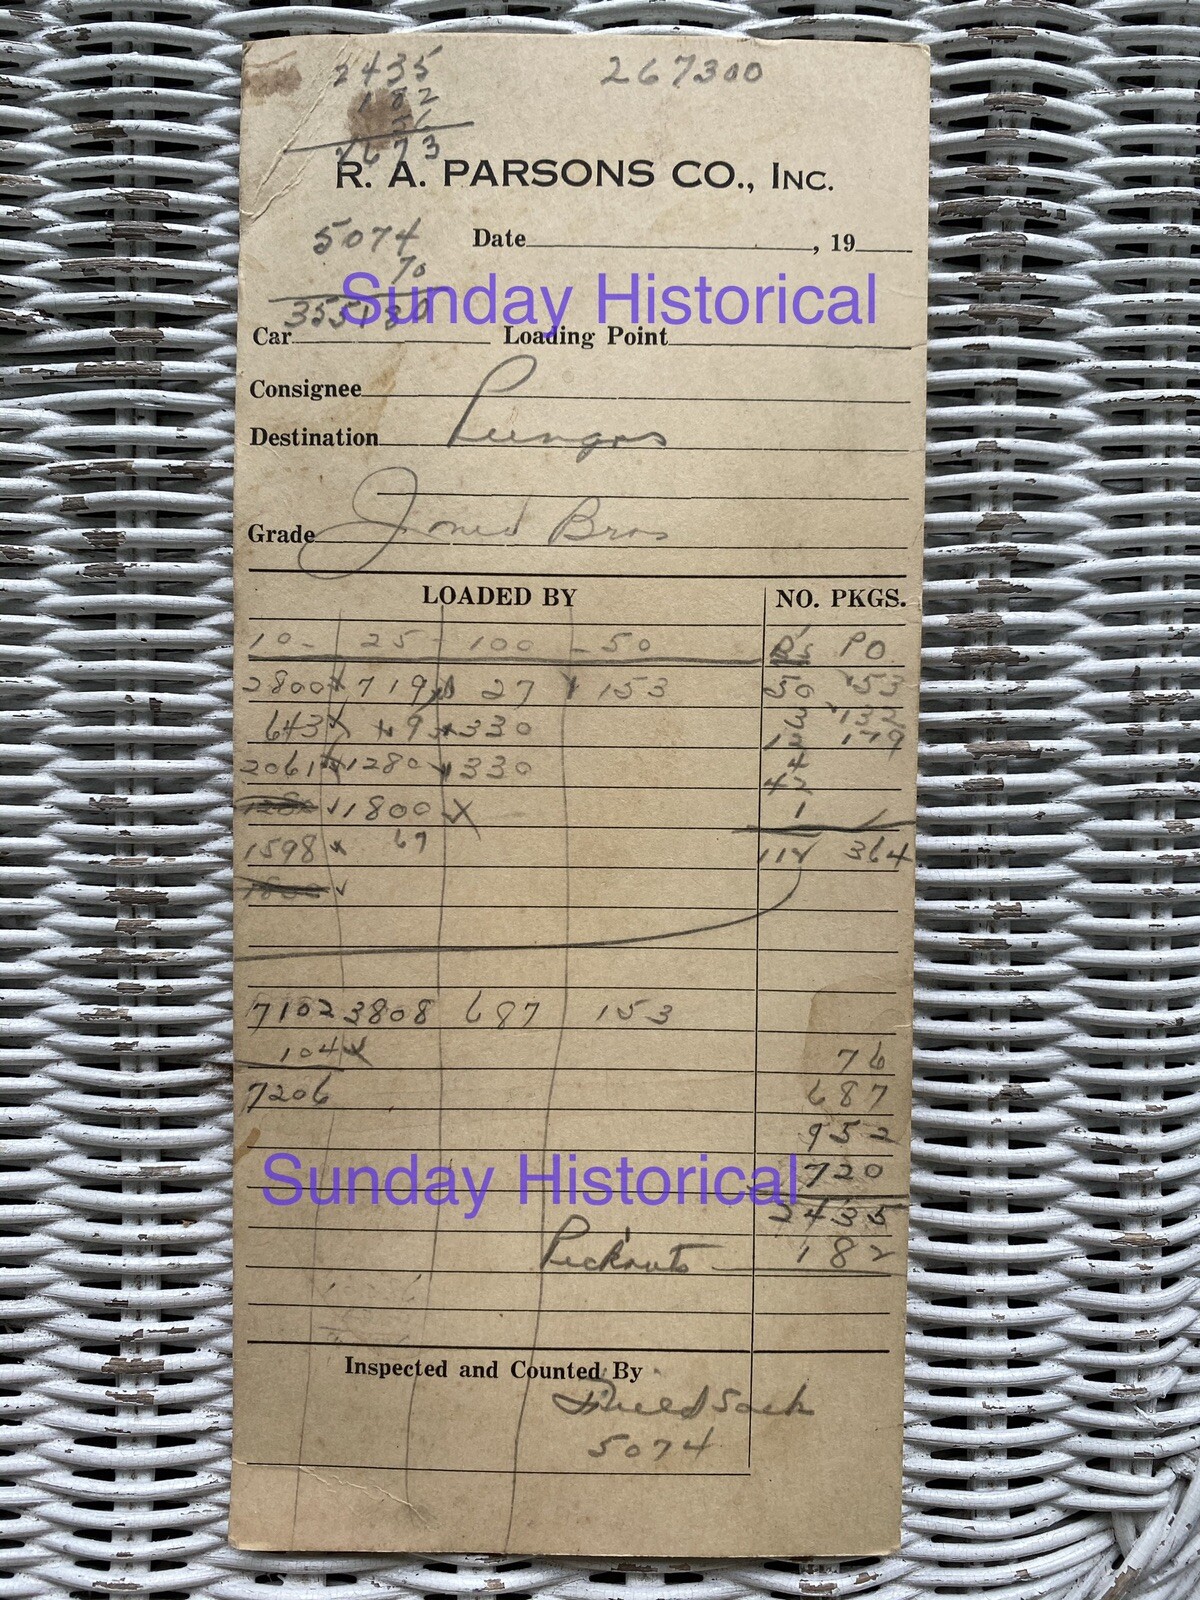 2435 267300
182
2673
R. A. PARSONS CO., INC.
5074 Date , 19
70
Sunday Historical
355180
Car Loading Point
Consignee
Destination
Grade Jones Bros
LOADED BY NO. PKGS.
10 - 25 - 100 - 50 B's PO
2800 719 27 153 50 53
643 330 3 132
12 179
2061 1280 330 4
42
1800 1
1598 67 112 364
7102 3808 687 153
104 76
7206 687
952
Sunday Historical 720
2435
Pickouts 182
Inspected and Counted By
Field Sack
5074